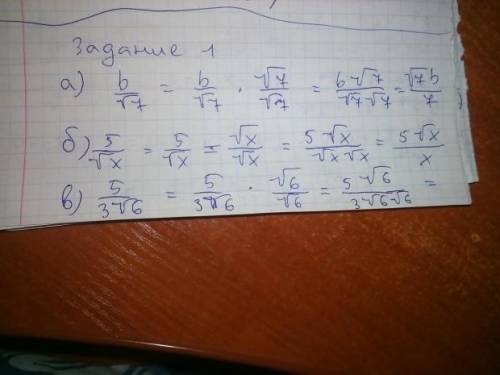 Задание 1
а) b/√7 = b/√7 · √7/√7 = b√7/√7√7 = √7b/7
б) 5/√x = 5/√x = √x/√x = 5√x/√x√x = 5√x/x
в) 5/3√6 = 5/3√6 · √6/√6 = 5√6/3√6√6 =